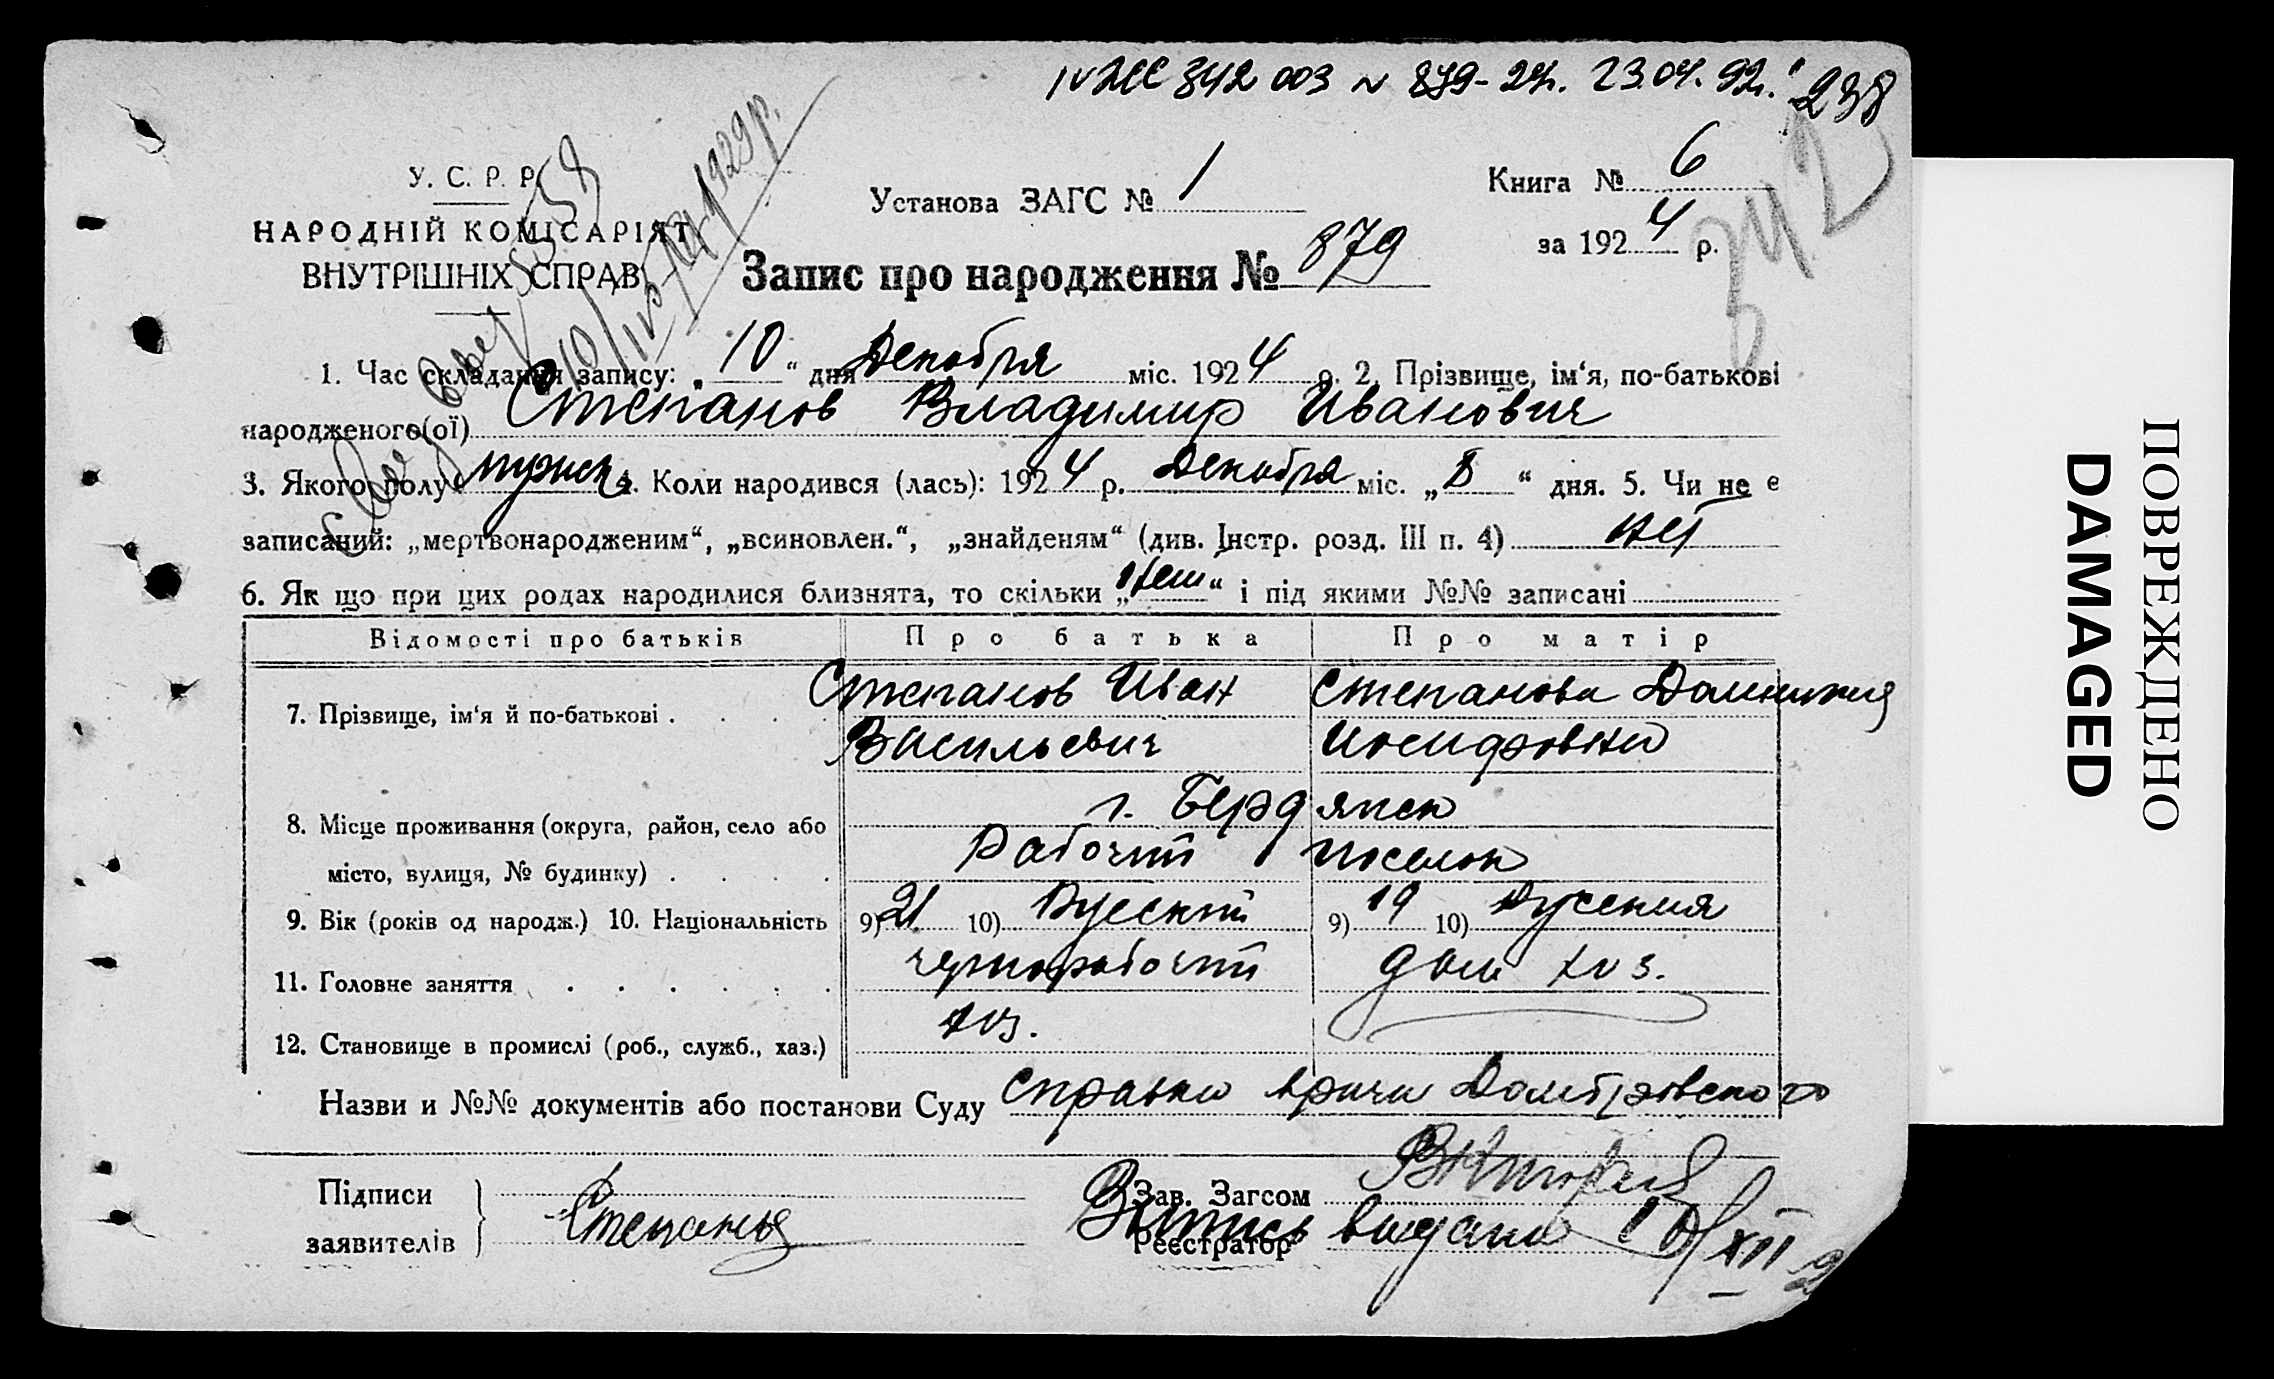 IV ЖС 342003 № 879 - 24г. 23.04.92г.
238
342
У. С. Р. Р.
НАРОДНІЙ КОМІСАРІЯТ
ВНУТРІШНІХ СПРАВ
1929 р.
Установа ЗАГС № 1
Книга № 6
за 1924 р.
Запис про народження № 879
1. Час складання запису: „ 10 “ дня Декабря міс. 1924 р. 2. Прізвище, ім‘я, по-батькові
народженого(ої) Степанов Владимир Иванович
3. Якого полу мужск 4. Коли народився (лась): 1924 р. Декабря міс. „ 8 “ дня. 5. Чи не є
записаний: „мертвонародженим“, „всиновлен.“, „знайденям“ (див. Інстр. розд. III п. 4) нет
6. Як що при цих родах народилися близнята, то скільки „ нет “ і під якими №№ записані
Відомості про батьків Про батька Про матір
7. Прізвище, ім‘я й по-батькові . Степанов Иван Васильевич Степанова Домникия Иосифовна
8. Місце проживання (округа, район, село або
місто, вулиця, № будинку) г. Бердянск
Рабочий поселок
9. Вік (років од народж.) 10. Національність 9) 21 10) Русский 9) 19 10) Русская
11. Головне заняття чернорабочий дом хоз.
12. Становище в промислі (роб., служб., хаз.) хоз.
Назви и №№ документів або постанови Суду Справка врача Домбровского
Підписи
заявителів
Степанов
Зав. Загсом
Реєстратор
Выпись выдана 10/XII
ПОВРЕЖДЕНО
DAMAGED